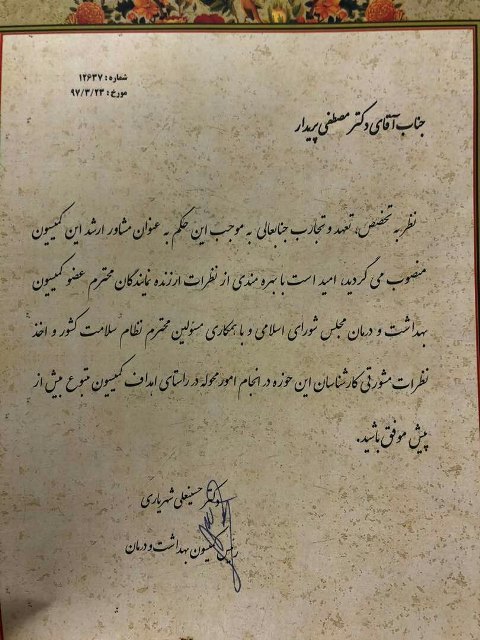 شماره: ۱۲۶۳۷
مورخ: ۹۷/۳/۲۳
جناب آقای دکتر مصطفی پریدار
نظر به تخصص، تعهد و تجارب جنابعالی به موجب این حکم به عنوان مشاور ارشد این کمیسیون
منصوب می گردید، امید است با بهره مندی از نظرات ارزنده نمایندگان محترم عضو کمیسیون
بهداشت و درمان مجلس شورای اسلامی و با همکاری مسئولین محترم نظام سلامت کشور و اخذ
نظرات مشورتی کارشناسان این حوزه در انجام امور محوله در راستای اهداف کمیسیون متبوع بیش از
پیش موفق باشید.
دکتر حسینعلی شهریاری
رئیس کمیسیون بهداشت و درمان